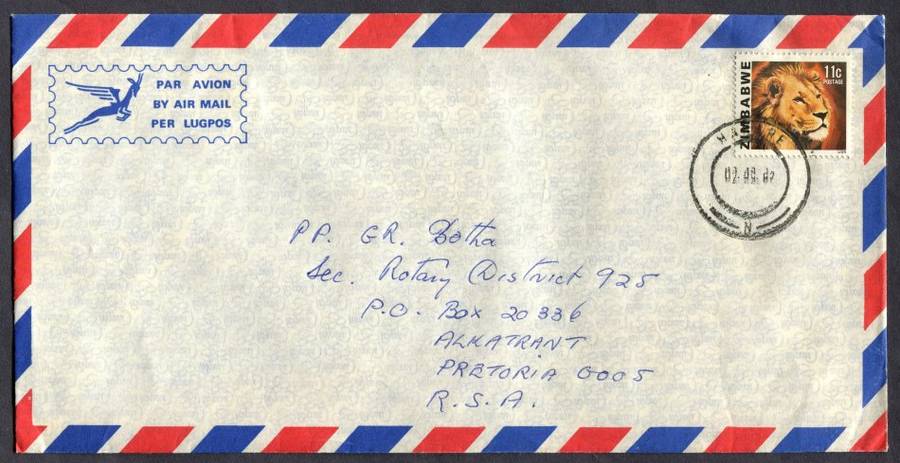 PAR AVION
BY AIR MAIL
PER LUGPOS
ZIMBABWE
11c
POSTAGE
HARARE
N
PP. GR. Botha
Sec. Rotary District 925
P.O. Box 20336
ALKATRANT
PRETORIA 0005
R.S.A.